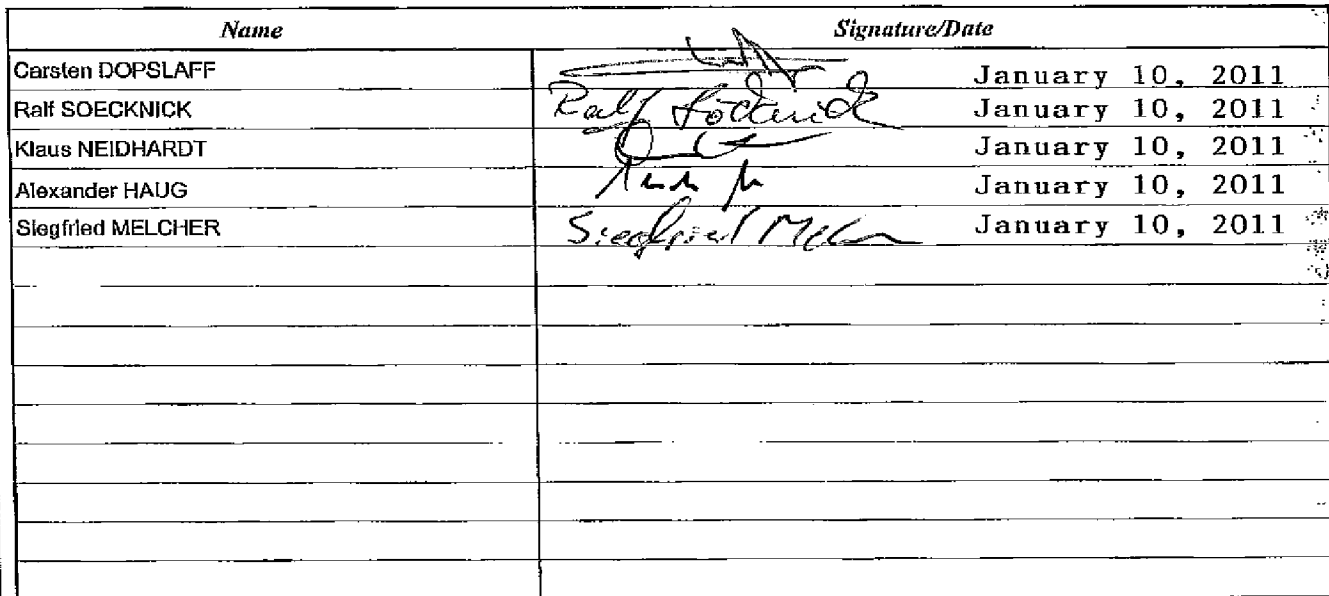 Name Signature/Date
Carsten DOPSLAFF January 10, 2011
Ralf SOECKNICK Ralf Söcknick January 10, 2011
Klaus NEIDHARDT January 10, 2011
Alexander HAUG January 10, 2011
Siegfried MELCHER Siegfried Melcher January 10, 2011